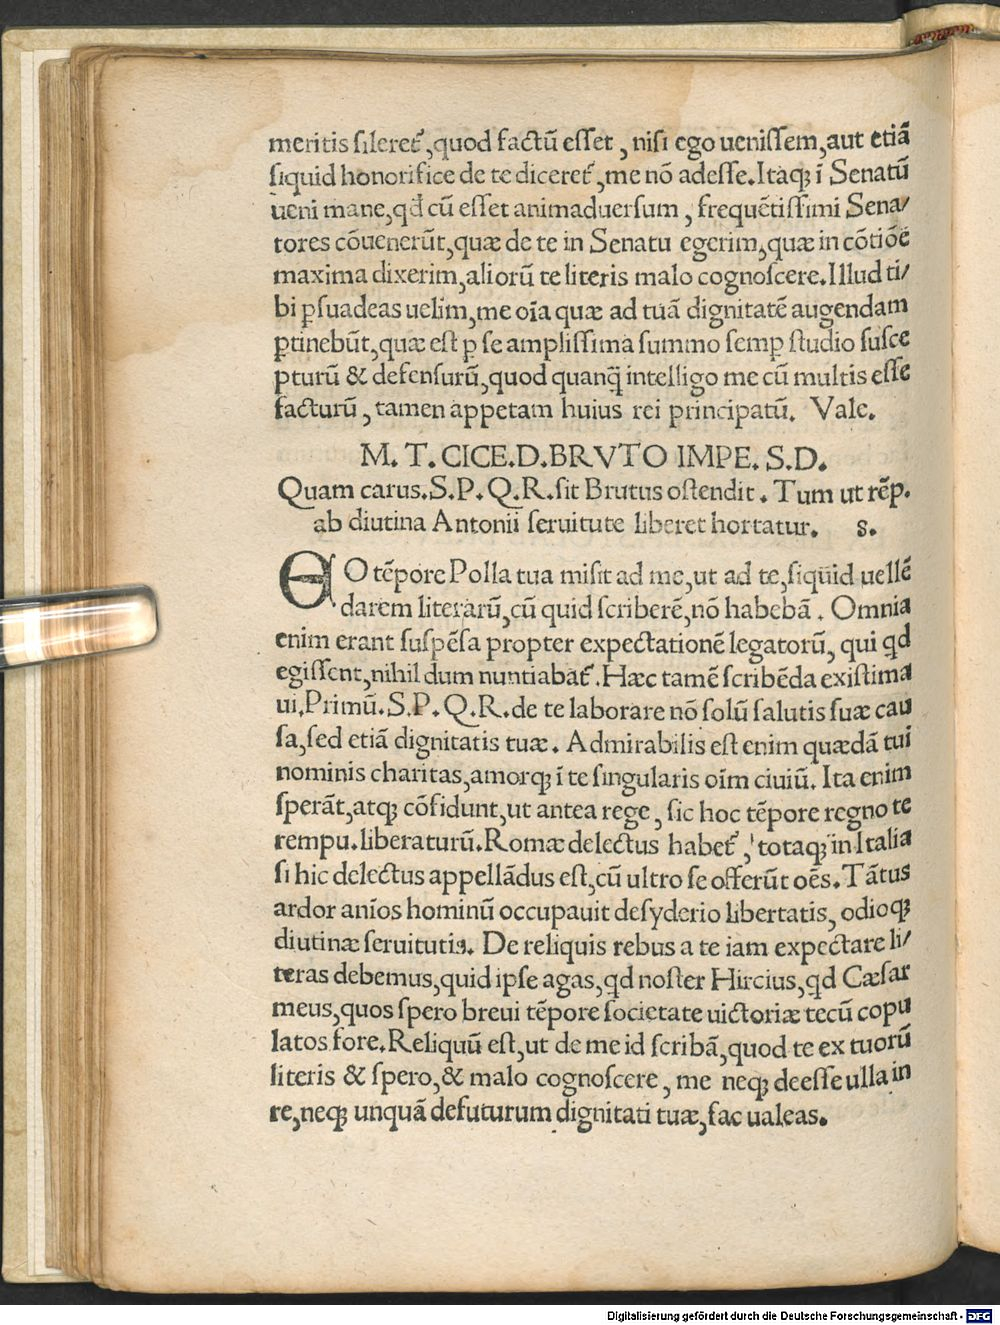 meritis sileret᷑,quod factū esset , nisi ego uenissem,aut etiā
siquid honorifice de te diceret᷑ ,me nō adesse.Itaqꝫ ī Senatū
ueni mane,qđ cū esset animaduersum , frequētissimi Sena/
tores cōuenerūt,quæ de te in Senatu egerim,quæ in cōtiōe
maxima dixerim,aliorū te literis malo cognoscere.Illud ti/
bi ꝑsuadeas uelim,me oīa quæ ad tuā dignitatē augendam
ꝑtinebūt,quæ est ꝑ se amplissima summo semꝑ studio susce
pturū & defensurū,quod quanq̄ intelligo me cū multis esse
facturū , tamen appetam huius rei principatū. Vale.
M. T. CICE.D.BRVTO IMPE. S.D.
Quam carus.S.P.Q.R.sit Brutus ostendit . Tum ut rēp.
ab diutina Antonii seruitute liberet hortatur. s.
EO tēpore Polla tua misit ad me,ut ad te,siquid uellē
darem literarū,cū quid scriberē,nō habebā . Omnia
enim erant suspēsa propter expectationē legatorū, qui qđ
egissent,nihil dum nuntiabāt᷑.Hæc tamē scribēda existima
ui.Primū.S.P.Q.R.de te laborare nō solū salutis suæ cau
sa,sed etiā dignitatis tuæ. Admirabilis est enim quædā tui
nominis charitas,amorqꝫ ī te singularis oīm ciuiū. Ita enim
sperāt,atqꝫ cōfidunt,ut antea rege , sic hoc tēpore regno te
rempu.liberaturū.Romæ delectus habet᷑ , totaqꝫ in Italia
si hic delectus appellādus est,cū ultro se offerūt oēs.Tātus
ardor anīos hominū occupauit desyderio libertatis, odioqꝫ
diutinæ seruitutis. De reliquis rebus a te iam expectare li/
teras debemus,quid ipse agas,qđ noster Hircius,qđ Cæsar
meus,quos spero breui tēpore societate uictoriæ tecū copu
latos fore.Reliquū est,ut de me id scribā,quod te ex tuorū
literis & spero,& malo cognoscere, me neqꝫ deesse ulla in
re,neqꝫ unquā defuturum dignitati tuæ,fac ualeas.
Digitalisierung gefördert durch die Deutsche Forschungsgemeinschaft - DFG